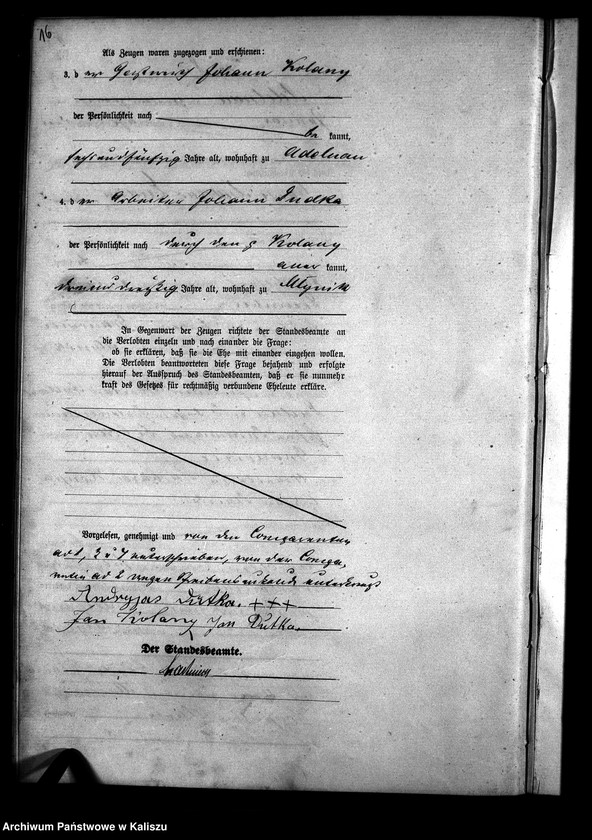 16
Als Zeugen waren zugezogen und erschienen:
3. der Gastwirth Johann Kolany
der Persönlichkeit nach
be kannt,
sechsundfünfzig Jahre alt, wohnhaft zu Adelnau
4. der Arbeiter Johann Dudka
der Persönlichkeit nach durch den p Kolany
aner kannt,
dreiunddreißig Jahre alt, wohnhaft zu Mlynik
In Gegenwart der Zeugen richtete der Standesbeamte an
die Verlobten einzeln und nach einander die Frage:
ob sie erklären, daß sie die Ehe mit einander eingehen wollen.
Die Verlobten beantworteten diese Frage bejahend und erfolgte
hierauf der Ausspruch des Standesbeamten, daß er sie nunmehr
kraft des Gesetzes für rechtmäßig verbundene Eheleute erkläre.
Vorgelesen, genehmigt und von den Comparenten
ad 1, 3 u 4 unterschrieben, von der Compa,
rentin ad 2 wegen Schreibensunkunde unterkreuzt
Andryjas Dutka. +++
Jan Kolany Jan Dutka.
Der Standesbeamte.
Archiwum Państwowe w Kaliszu